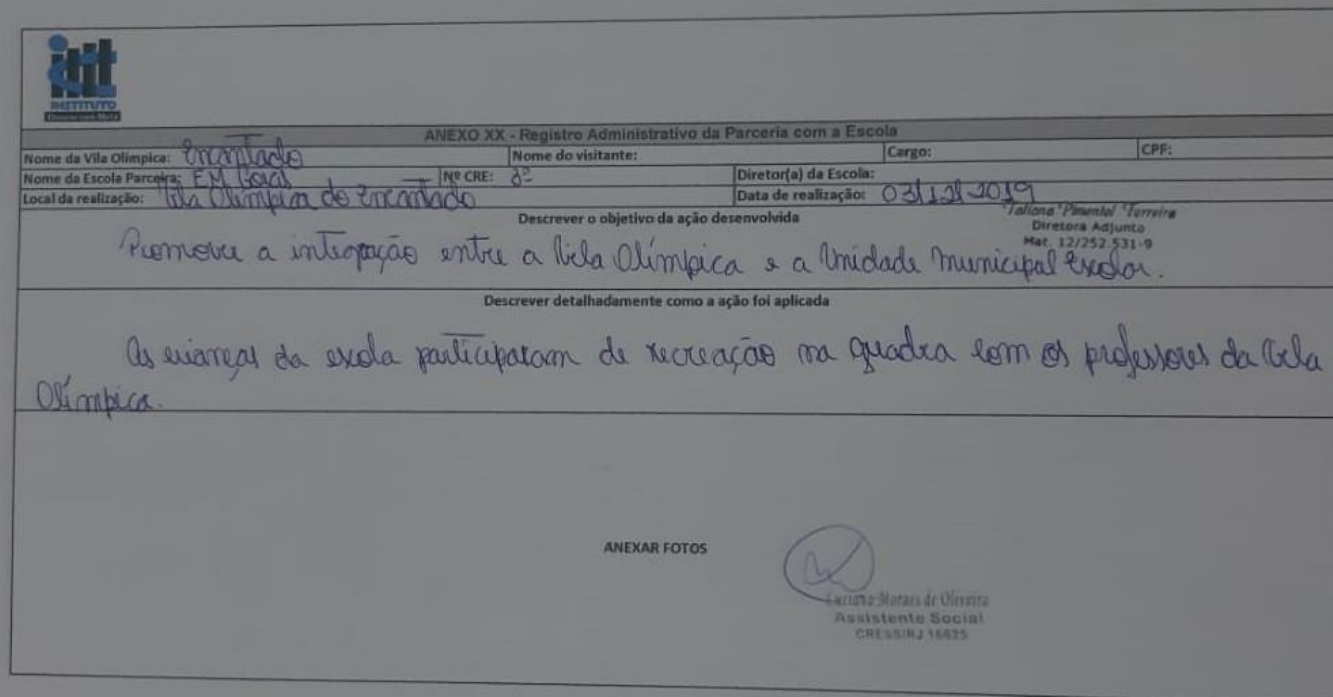 INSTITUTO
ANEXO XX - Registro Administrativo da Parceria com a Escola
Nome da Vila Olímpica: Encantado Nome do visitante: Cargo: CPF:
Nome da Escola Parceira: EM Nº CRE: 3ª Diretor(a) da Escola:
Local da realização: Vila Olímpica do Encantado Data de realização: 03/12/2019
Taliana Pimentel Ferreira
Diretora Adjunto
Mat. 12/252.531-9
Descrever o objetivo da ação desenvolvida
Promover a integração entre a Vila Olímpica e a Unidade Municipal Escolar.
Descrever detalhadamente como a ação foi aplicada
As crianças da escola participaram de recreação na quadra com os professores da Vila
Olímpica.
ANEXAR FOTOS
Luciana Moraes de Oliveira
Assistente Social
CRESS/RJ 16625